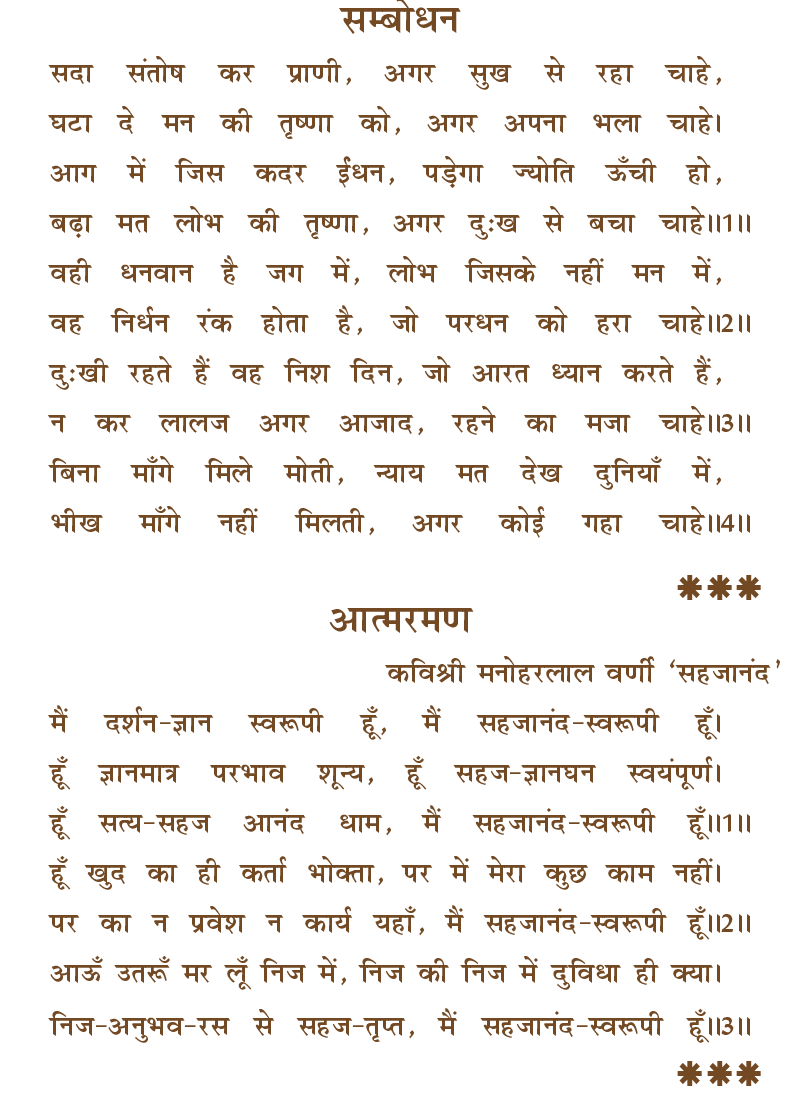 सम्बोधन
सदा संतोष कर प्राणी, अगर सुख से रहा चाहे,
घटा दे मन की तृष्णा को, अगर अपना भला चाहे।
आग में जिस कदर ईंधन, पड़ेगा ज्योति ऊँची हो,
बढ़ा मत लोभ की तृष्णा, अगर दुःख से बचा चाहे॥1॥
वही धनवान है जग में, लोभ जिसके नहीं मन में,
वह निर्धन रंक होता है, जो परधन को हरा चाहे॥2॥
दुःखी रहते हैं वह निश दिन, जो आरत ध्यान करते हैं,
न कर लालज अगर आजाद, रहने का मजा चाहे॥3॥
बिना माँगे मिले मोती, न्याय मत देख दुनियाँ में,
भीख माँगे नहीं मिलती, अगर कोई गहा चाहे॥4॥
***
आत्मरमण
कविश्री मनोहरलाल वर्णी ‘सहजानंद’
मैं दर्शन-ज्ञान स्वरूपी हूँ, मैं सहजानंद-स्वरूपी हूँ।
हूँ ज्ञानमात्र परभाव शून्य, हूँ सहज-ज्ञानघन स्वयंपूर्ण।
हूँ सत्य-सहज आनंद धाम, मैं सहजानंद-स्वरूपी हूँ॥1॥
हूँ खुद का ही कर्ता भोक्ता, पर में मेरा कुछ काम नहीं।
पर का न प्रवेश न कार्य यहाँ, मैं सहजानंद-स्वरूपी हूँ॥2॥
आऊँ उतरूँ मर लूँ निज में, निज की निज में दुविधा ही क्या।
निज-अनुभव-रस से सहज-तृप्त, मैं सहजानंद-स्वरूपी हूँ॥3॥
***